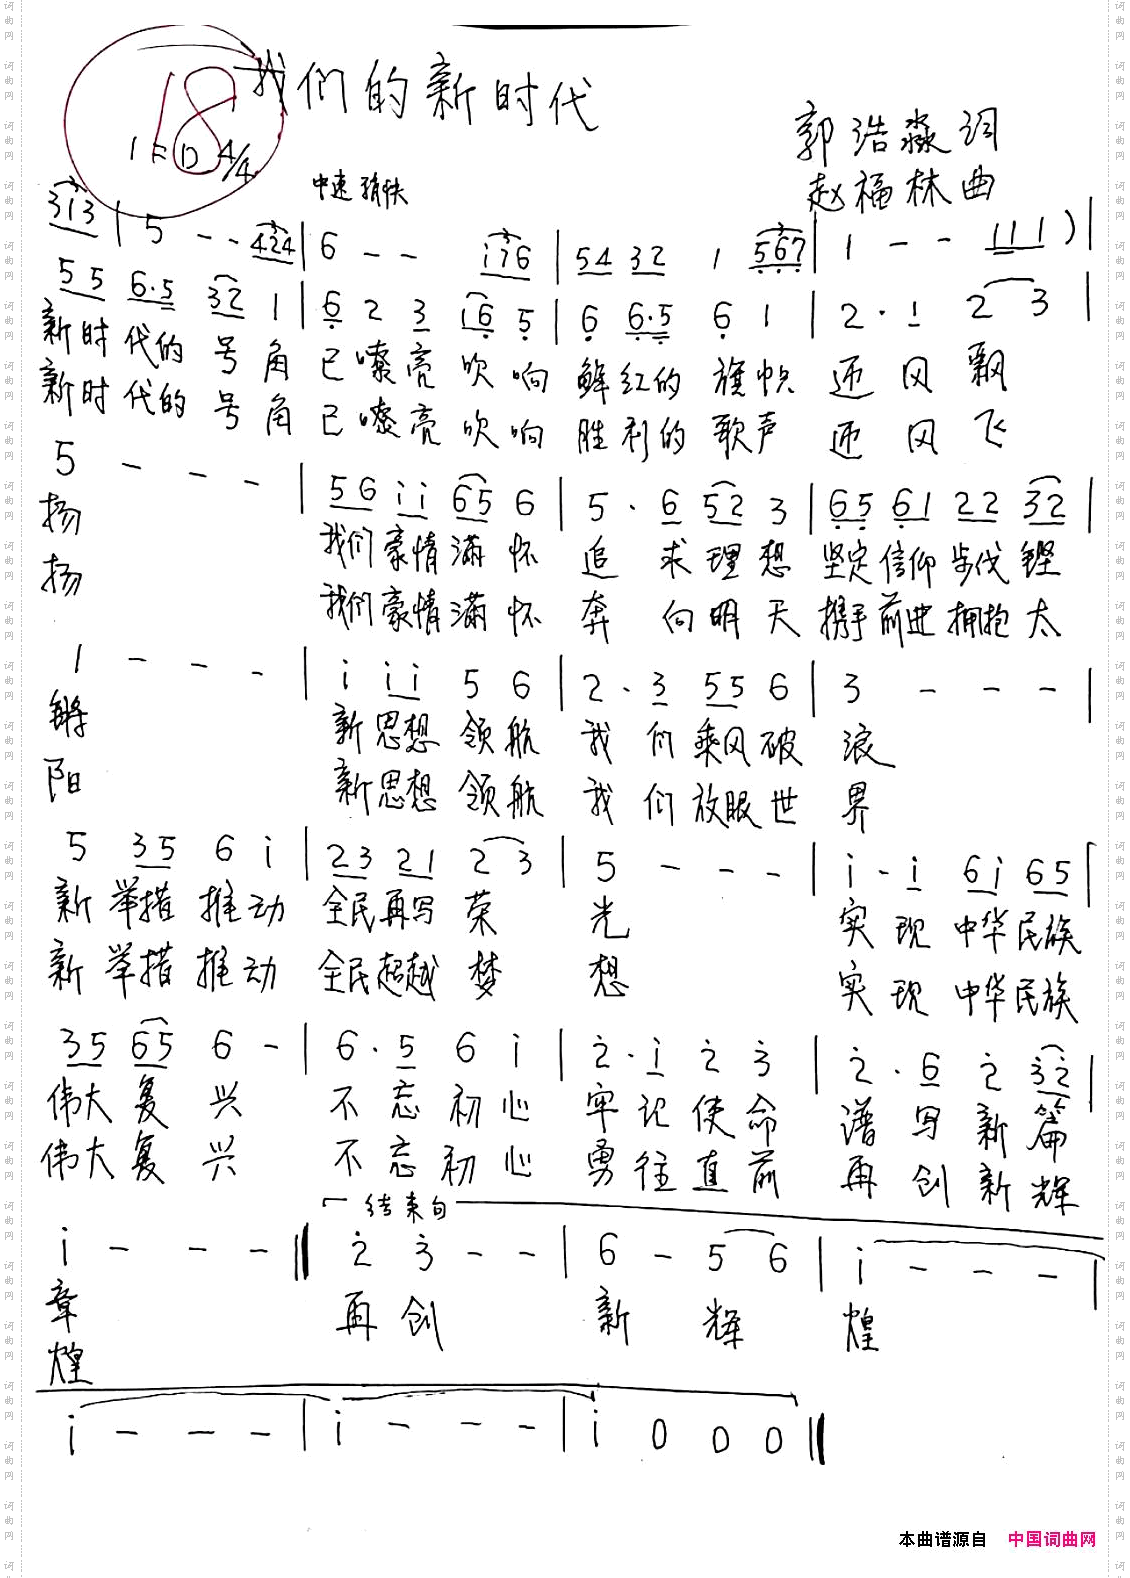 我们的新时代
18
1=D 4/4
中速稍快
郭浩淼词
赵福林曲
313 | 5 - - 424 | 6 - - i76 | 54 32 1 567 | 1 - - 111 ) |
55 6·5 32 1 | 6 2 3 16 5 | 6 6·5 6 1 | 2 · 1 2 3 |
新时代的号角 已嘹亮吹响 鲜红的旗帜 迎风飘
新时代的号角 已嘹亮吹响 胜利的歌声 迎风飞
5 - - - | 56 ii 65 6 | 5 · 6 52 3 | 65 61 22 32 |
扬 我们豪情满怀 追求理想 坚定信仰步伐铿
扬 我们豪情满怀 奔向明天 携手前进拥抱太
1 - - - | i ii 5 6 | 2 · 3 55 6 | 3 - - - |
锵 新思想领航 我们乘风破浪
阳 新思想领航 我们放眼世界
5 35 6 i | 23 21 2 3 | 5 - - - | i · i 6i 65 |
新举措推动 全民再写荣光 实现中华民族
新举措推动 全民超越梦想 实现中华民族
35 65 6 - | 6 · 5 6 i | 2 · i 2 3 | 2 · 6 2 32 |
伟大复兴 不忘初心 牢记使命 谱写新篇
伟大复兴 不忘初心 勇往直前 再创新辉
结束句
i - - - || 2 3 - - | 6 - 5 6 | i - - - |
章 再创 新辉 煌
煌
i - - - | i - - - | i 0 0 0 ||
本曲谱源自 中国词曲网